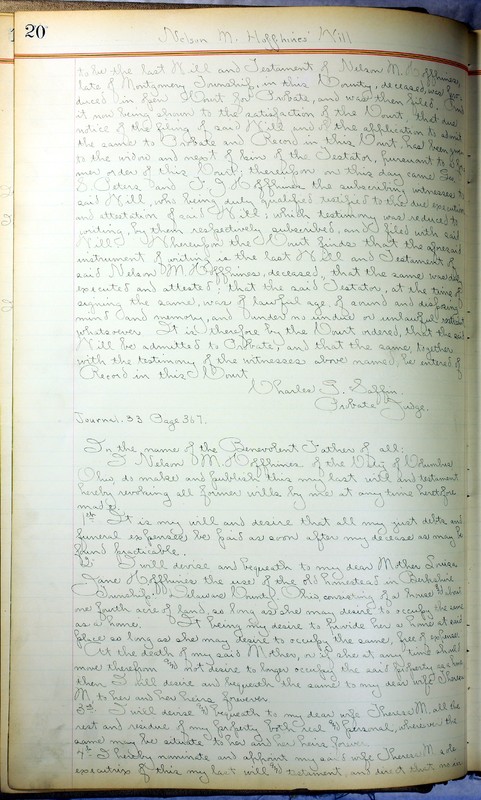 20 Nelson M. Hoffhines' Will
to be the last Will and Testament of Nelson M. Hoffhines,
late of Montgomery Township, in this County, deceased, was pro-
duced in open Court for Probate, and was then filed. And
it now being shown to the satisfaction of the Court, that due
notice of the filing of said Will, and of the application to admit
the same to Probate and Record in this Court, has been given
to the widow and next of kin of the Testator, pursuant to a for-
mer order of this Court; thereupon on this day came Geo.
D. Peters and F. J. Hoffhines the subscribing witnesses to
said Will, who being duly qualified testified to the due execution
and attestation of said Will; which testimony was reduced to
writing, by them respectively subscribed, and filed with said
Will. Whereupon the Court finds that the aforesaid
instrument of writing is the last Will and Testament of
said Nelson M. Hoffhines, deceased; that the same was duly
executed and attested; that the said Testator, at the time of
signing the same, was of lawful age, of sound and disposing
mind and memory, and under no undue or unlawful restraint
whatsoever. It is therefore by the Court ordered, that the said
Will be admitted to Probate, and that the same, together
with the testimony of the witnesses above named, be entered of
Record in this Court.
Charles G. Saffin.
Probate Judge.
Journal. 33 Page 367.
In the name of the Benevolent Father of all:
I Nelson M. Hoffhines of the City of Columbus
Ohio do make and publish this my last will and testament
hereby revoking all former wills by me at any time heretofore
made.
1st It is my will and desire that all my just debts and
funeral expenses be paid as soon after my decease as may be
found practicable.
2d. I will devise and bequeath to my dear Mother Luiza
Jane Hoffhines the use of the old homestead in Berkshire
Township, Delaware County, Ohio, consisting of a house & about
one fourth acre of land, so long as she may desire to occupy the same
as a home. It being my desire to provide her a home at said
place so long as she may desire to occupy the same, free of expense.
At the death of my said Mother, or if she at any time shall
move therefrom & not desire to longer occupy the said property as a home
then I will desire and bequeath the same to my dear wife Theresa
M. to her and her heirs forever.
3rd. I will devise & bequeath to my dear wife Theresa M. all the
rest and residue of my property both real & personal, wherever the
same may be situate to her and her heirs forever.
4th I hereby nominate and appoint my said wife Theresa M. sole
executrix of this my last will & testament, and direct that no in-